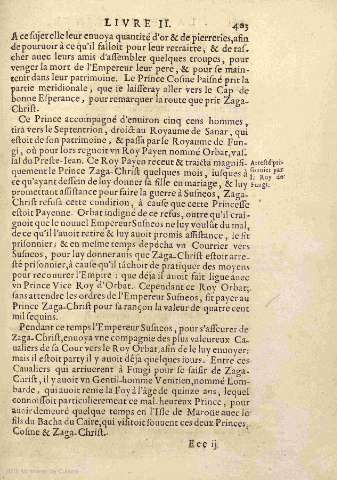 LIVRE II. 403
A ce sujet elle leur enuoya quantité d'or & de pierreries, afin
de pouruoir à ce qu'il falloit pour leur retraitte, & de tas-
cher auec leurs amis d'assembler quelques troupes, pour
venger la mort de l'Empereur leur pere, & pour se main-
tenir dans leur patrimoine. Le Prince Cosme l'aisné prit la
partie meridionale, que ie laisseray aller vers le Cap de
bonne Esperance, pour remarquer la route que prit Zaga-
Christ.
Ce Prince accompagné d'enuiron cinq cens hommes,
tira vers le Septentrion, droict au Royaume de Sanar, qui
estoit de son patrimoine, & passa par le Royaume de Fun-
gi, où pour lors regnoit vn Roy Payen nommé Orbat, vas-
sal du Preste-Jean. Ce Roy Payen receut & traicta magnifi-
quement le Prince Zaga-Christ quelques mois, iusques à
ce qu'ayant dessein de luy donner sa fille en mariage, & luy
promettant assistance pour faire la guerre à Susneos, Zaga-
Christ refusa cette condition, à cause que cette Princesse
estoit Payenne. Orbat indigné de ce refus, outre qu'il crai-
gnoit que le nouuel Empereur Susneos ne luy voulust du mal,
de ce qu'il l'auoit retiré & luy auoit promis assistance, le fit
prisonnier; & en mesme temps depécha vn Courrier vers
Susneos, pour luy donner auis que Zaga-Christ estoit arre-
sté prisonnier, à cause qu'il tâchoit de pratiquer des moyens
pour recouurer l'Empire: que déja il auoit fait ligue auec
vn Prince Vice Roy d'Orbat. Cependant ce Roy Orbat,
sans attendre les ordres de l'Empereur Susneos, fit payer au
Prince Zaga-Christ pour sa rançon la valeur de quatre cent
mil sequins.
Pendant ce temps l'Empereur Susneos, pour s'asseurer de
Zaga-Christ, enuoya vne compagnie des plus valeureux Ca-
ualiers de sa Cour vers le Roy Orbat, afin de le luy enuoyer;
mais il estoit party il y auoit déja quelques iours. Entre ces
Caualiers qui arriuerent à Fungi pour se saisir de Zaga-
Christ, il y auoit vn Gentil-homme Venitien, nommé Lom-
barde, qui auoit renié la Foy à l'âge de quinze ans, lequel
connoissoit particulierement ce mal-heureux Prince, pour
auoir demeuré quelque temps en l'Isle de Maroue auec le
fils du Bacha du Caire, qui visitoit souuent ces deux Princes,
Cosme & Zaga-Christ.
Eee ij
Arresté pri-
sonnier par
le Roy de
Fungi.